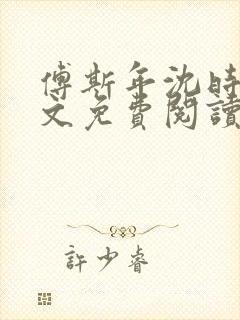 傅斯年沈時
文免費閱讀
許少睿